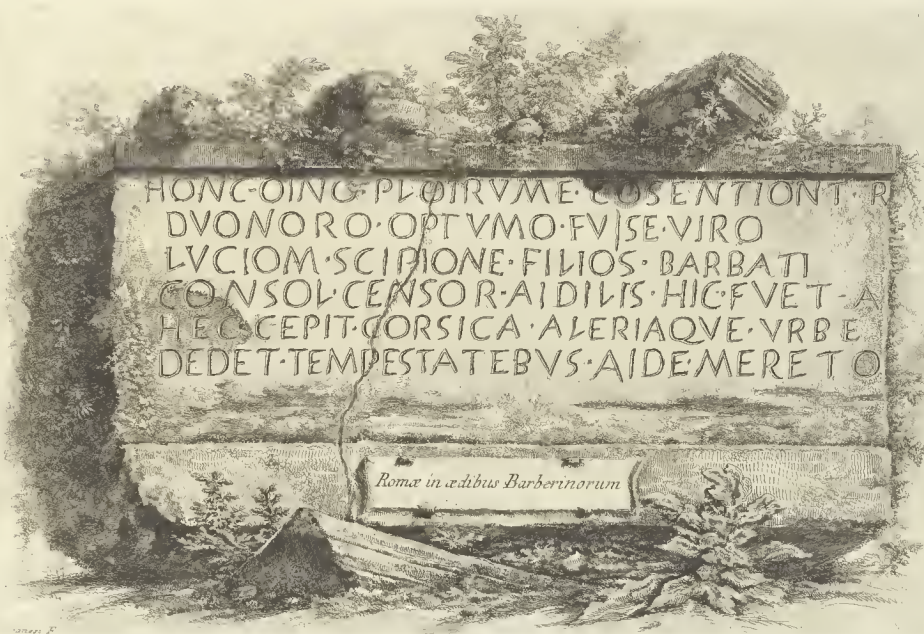 HONC·OINO·PLOIRVME·COSENTIONT·R
DVONORO·OPTVMO·FVISE·VIRO
LVCIOM·SCIPIONE·FILIOS·BARBATI
CONSOL·CENSOR·AIDILIS·HIC·FVET·A
HEC·CEPIT·CORSICA·ALERIAQVE·VRBE
DEDET·TEMPESTATEBVS·AIDE·MERETO
Romæ in ædibus Barberinorum